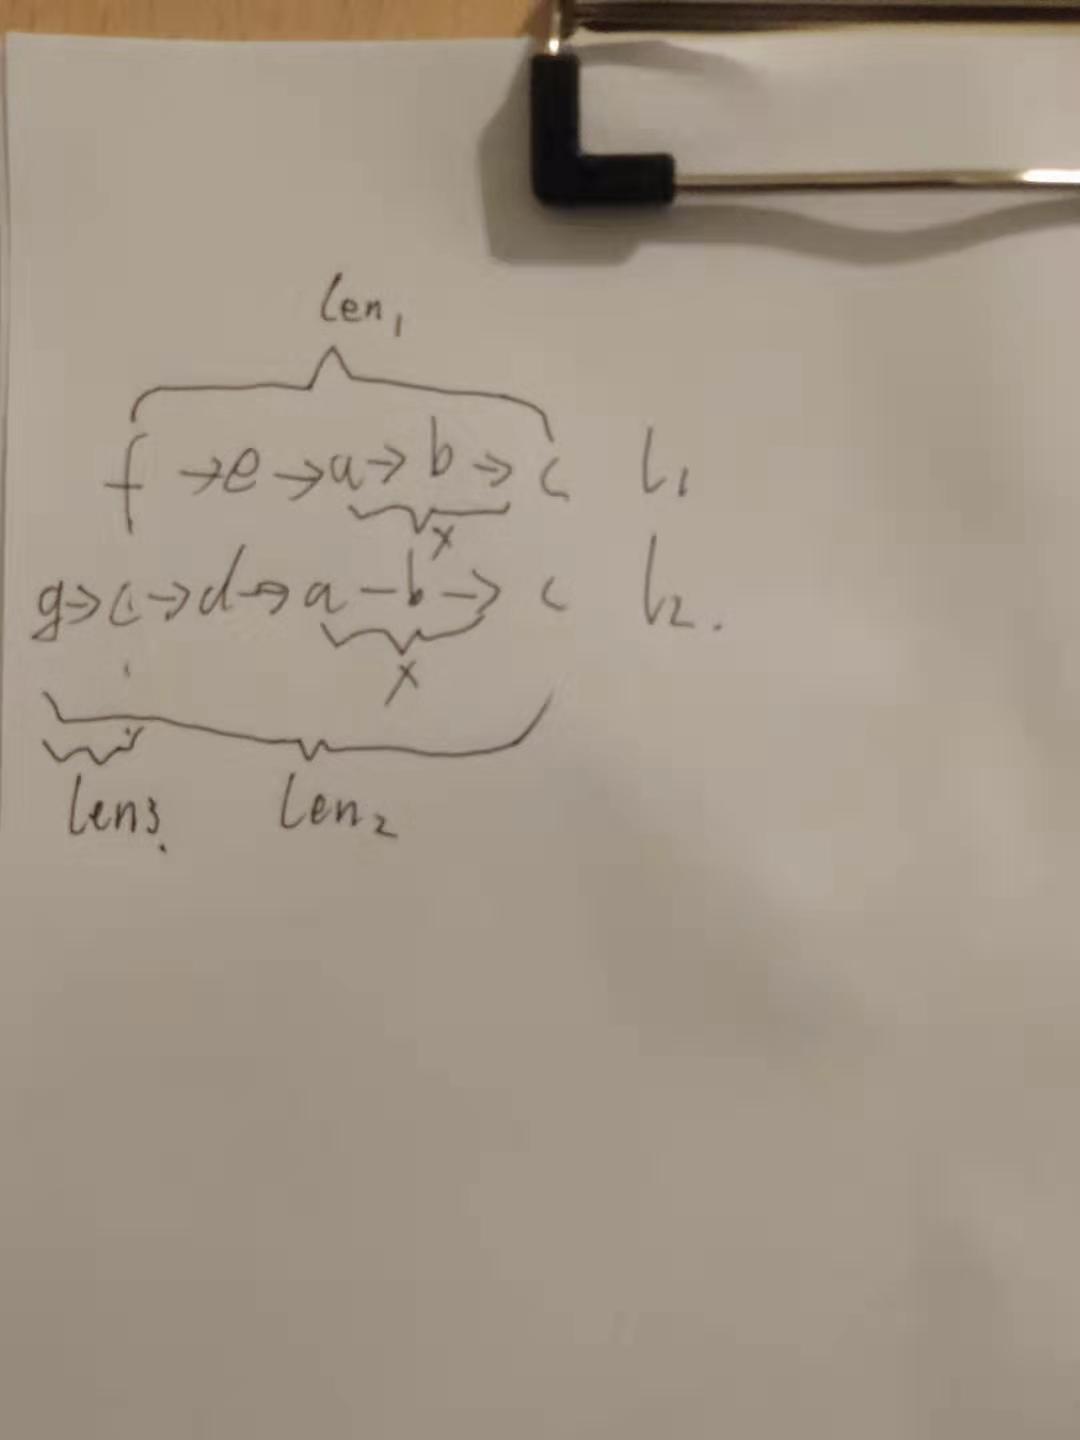 len₁
f → e → a → b → c l₁
x
g → c → d → a – b → c l₂.
x
len3. len₂